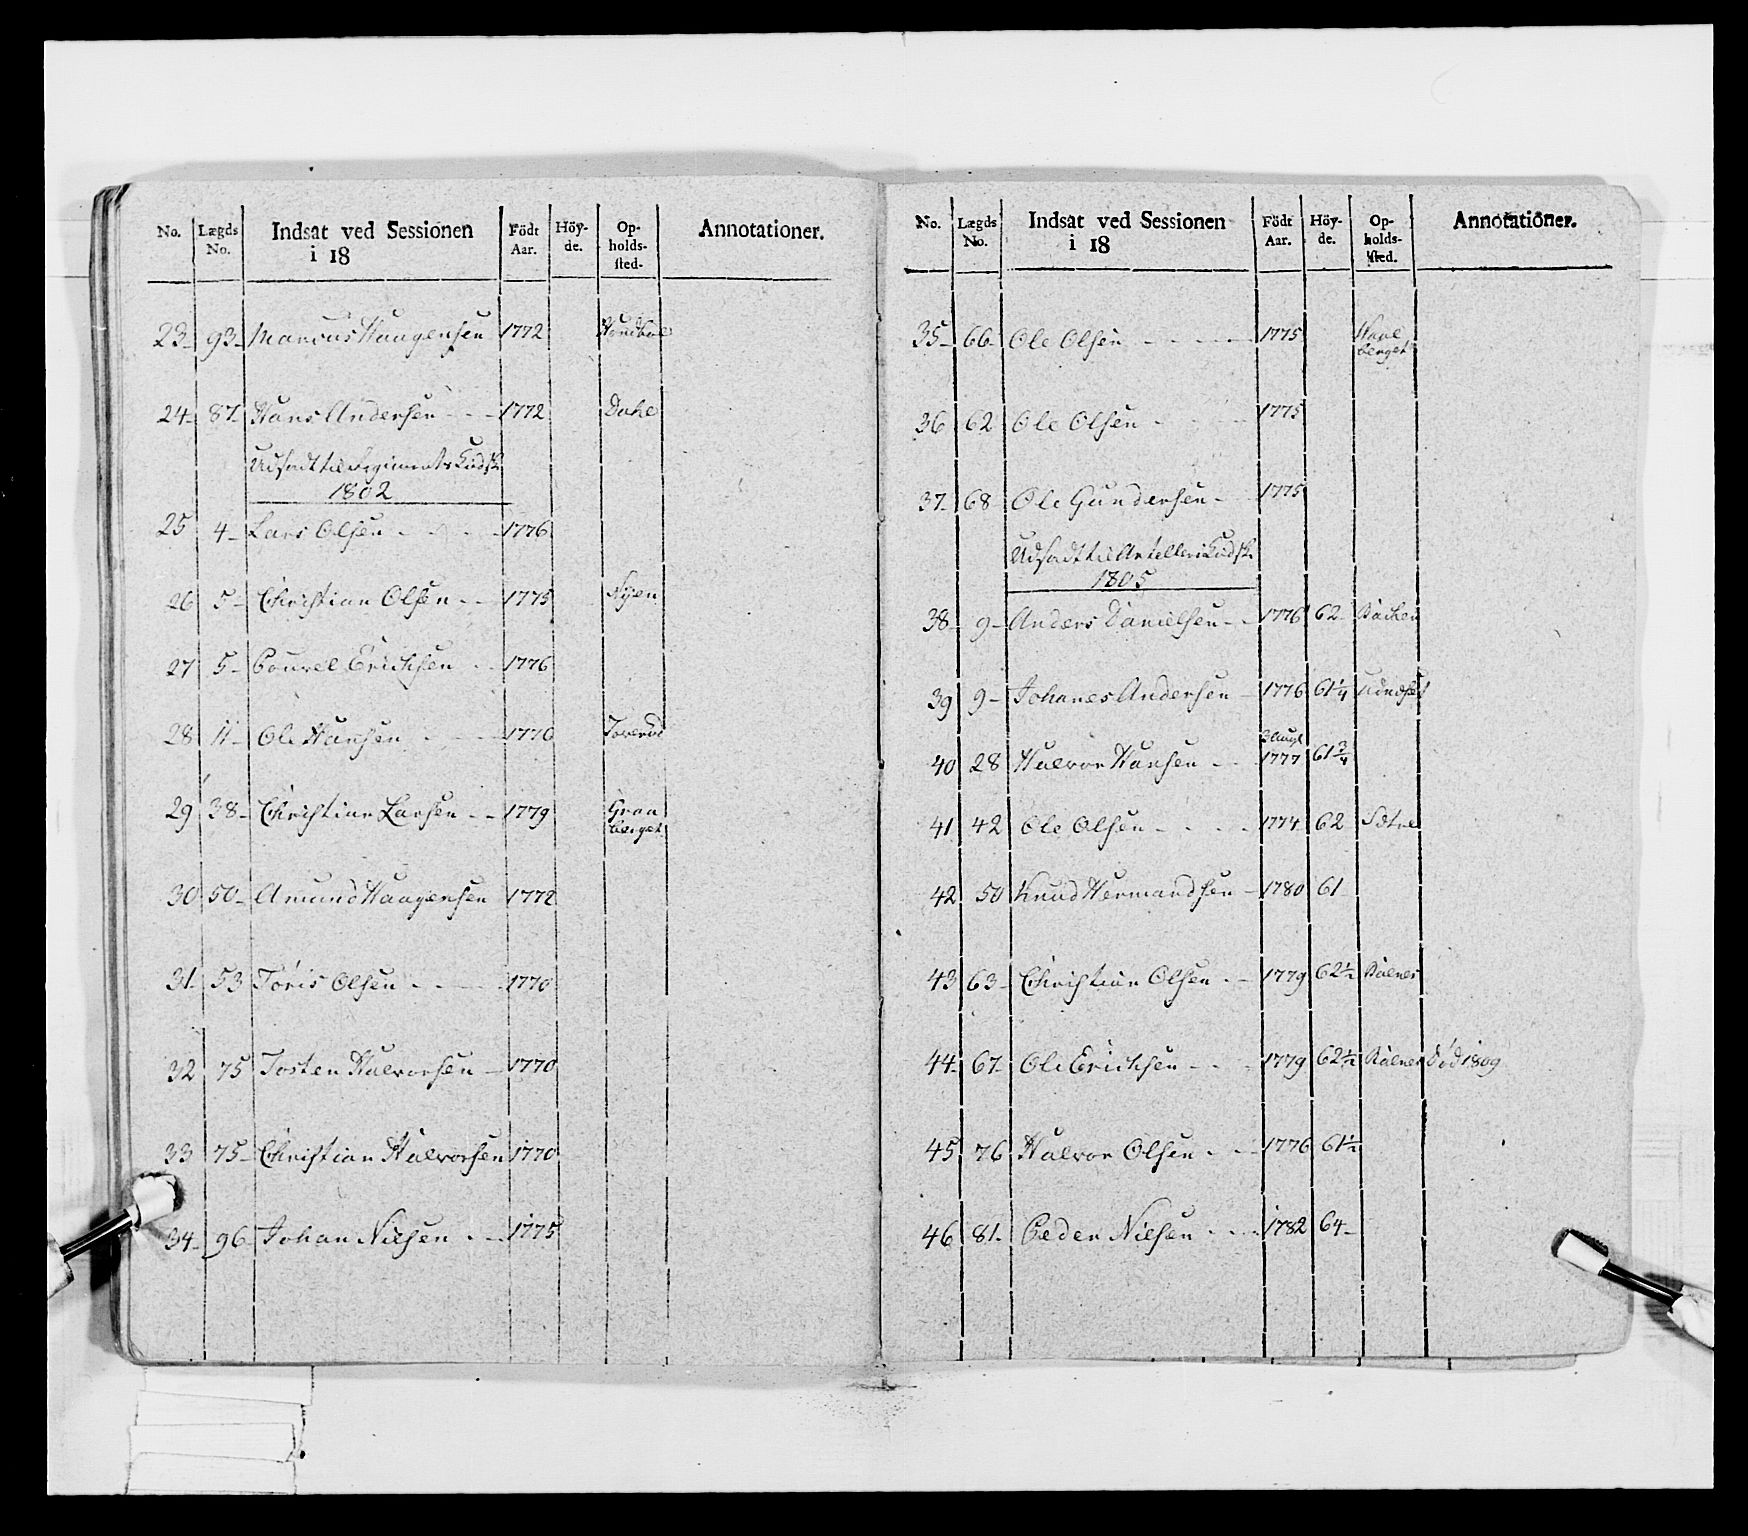 No. Lægds No. Indsat ved Sessionen i 18 Födt Aar. Höy-de. Op-holds-sted. Annotationer.
23 93 Marcus Haagensen 1772
24 87 Hans Andersen 1772 Dahl
Udsadt til Regiments Kudsk
1802
25 4 Lars Olsen 1776
26 5 Christian Olsen 1775 Nÿen
27 5 Pouvel Erichsen 1776
28 11 Ole Hansen 1770
29 38 Christian Larsen 1779 Gran
berget
30 50 Amund Haagensen 1772
31 53 Toris Olsen 1770
32 75 Tosten Halvorsen 1770
33 75 Christian Halvorsen 1770
34 96 Johan Nielsen 1775
No. Lægds No. Indsat ved Sessionen i 18 Födt Aar. Höy-de. Op-holds-sted. Annotationer.
35 66 Ole Olsen 1775
berget
36 62 Ole Olsen 1775
37 68 Ole Gundersen 1775
Udsadt til Artelleri Kudsk
1805
38 9 Anders Danielsen 1776 62 Backen
39 9 Johanes Andersen 1776 61 1/4
40 28 Halvor Hansen 1777 61 3/4
41 42 Ole Olsen 1774 62 Sætre
42 50 Knud Hermandsen 1780 61
43 63 Christian Olsen 1779 62 1/2
44 67 Ole Erichsen 1779 62 1/2 Død 1809
45 76 Halvor Olsen 1776 61 1/2
46 81 Peder Nielsen 1782 64